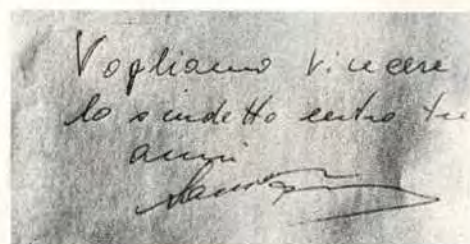 Vogliamo vincere
lo scudetto entro tre
anni